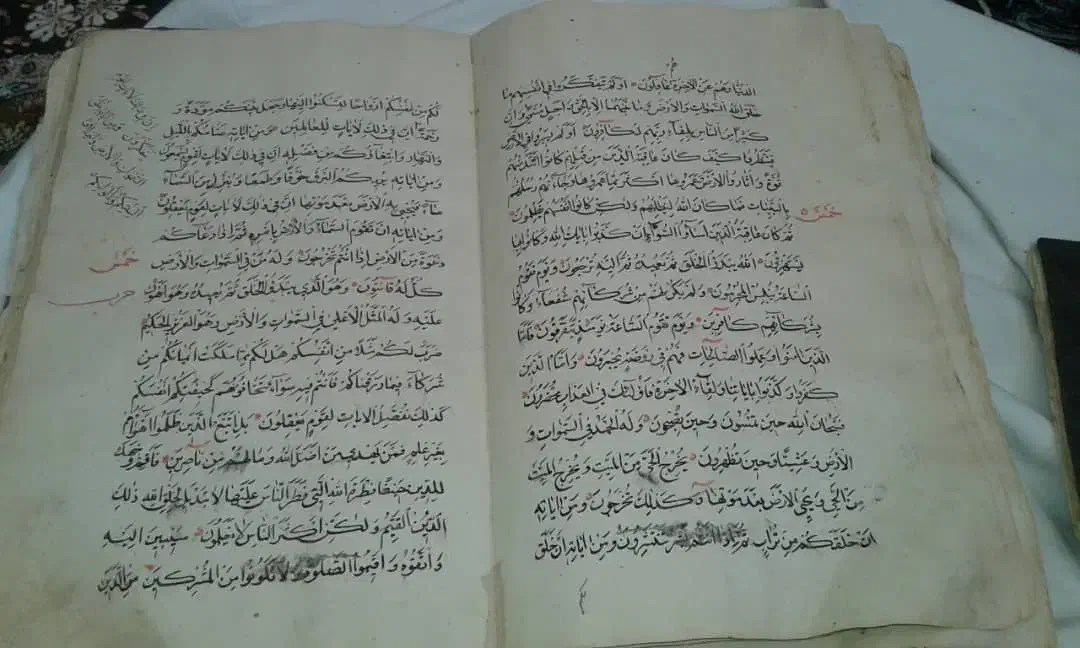 الدنيا وهم عن الاخرة غافلون اولم يتفكروا في انفسهم ما
خلق الله السموات والارض وما بينهما الا بالحق واجل مسمى وان
كثيرا من الناس بلقاء ربهم لكافرون اولم يسيروا في الارض
فينظروا كيف كان عاقبة الذين من قبلهم كانوا اشد منهم
قوة واثاروا الارض وعمروها اكثر مما عمروها وجاءتهم رسلهم
بالبينات فما كان الله ليظلمهم ولكن كانوا انفسهم يظلمون
خمس
ثم كان عاقبة الذين اساؤا السوأى ان كذبوا بايات الله وكانوا بها
يستهزؤن الله يبدؤ الخلق ثم يعيده ثم اليه ترجعون ويوم تقوم
الساعة يبلس المجرمون ولم يكن لهم من شركائهم شفعاء وكانوا
بشركائهم كافرين ويوم تقوم الساعة يومئذ يتفرقون فاما
الذين امنوا وعملوا الصالحات فهم في روضة يحبرون واما الذين
كفروا وكذبوا باياتنا ولقاء الاخرة فاولئك في العذاب محضرون
فسبحان الله حين تمسون وحين تصبحون وله الحمد في السموات و
الارض وعشيا وحين تظهرون يخرج الحي من الميت ويخرج الميت
من الحي ويحيي الارض بعد موتها وكذلك تخرجون ومن اياته
ان خلقكم من تراب ثم اذا انتم بشر تنتشرون ومن اياته ان خلق
لكم من انفسكم ازواجا لتسكنوا اليها وجعل بينكم مودة و
رحمة ان في ذلك لايات للعالمين ومن اياته منامكم بالليل
والنهار وابتغاؤكم من فضله ان في ذلك لايات لقوم يسمعون
ومن اياته يريكم البرق خوفا وطمعا وينزل من السماء
ماء فيحيي به الارض بعد موتها ان في ذلك لايات لقوم يعقلون
ومن اياته ان تقوم السماء والارض بامره ثم اذا دعاكم
دعوة من الارض اذا انتم تخرجون وله من في السموات والارض
خمس
كل له قانتون وهو الذي يبدؤ الخلق ثم يعيده وهو اهون
حزب
عليه وله المثل الاعلى في السموات والارض وهو العزيز الحكيم
ضرب لكم مثلا من انفسكم هل لكم مما ملكت ايمانكم من
شركاء فيما رزقناكم فانتم فيه سواء تخافونهم كخيفتكم انفسكم
كذلك نفصل الايات لقوم يعقلون بل اتبع الذين ظلموا اهواءهم
بغير علم فمن يهدي من اضل الله وما لهم من ناصرين فاقم وجهك
للدين حنيفا فطرة الله التي فطر الناس عليها لا تبديل لخلق الله ذلك
الدين القيم ولكن اكثر الناس لا يعلمون منيبين اليه
واتقوه واقيموا الصلوة ولا تكونوا من المشركين من الذين